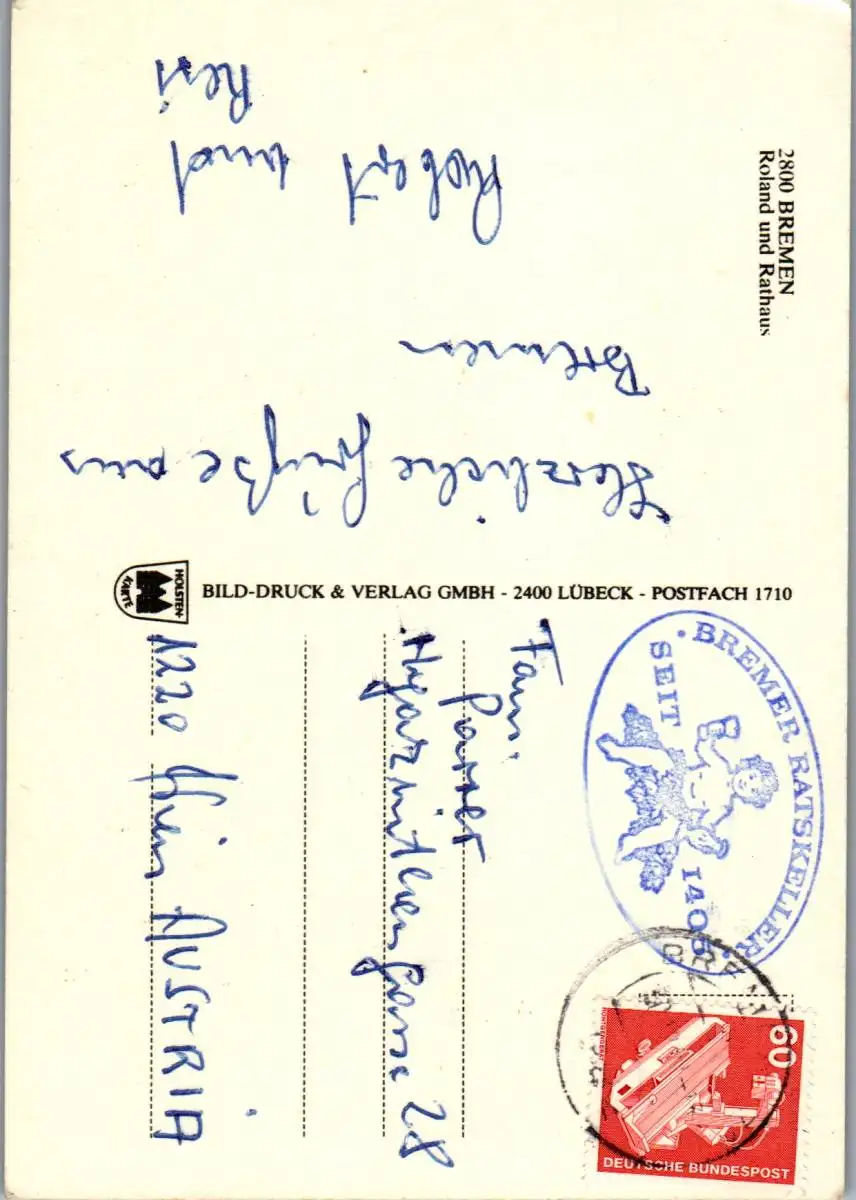 2800 BREMEN
Roland und Rathaus
Herzliche Grüße aus
Bremen
Robert und
Resi
HOLSTEN-
KARTE
BILD-DRUCK & VERLAG GMBH - 2400 LÜBECK - POSTFACH 1710
BREMER RATSKELLER
SEIT 1405
BREMEN
60
DEUTSCHE BUNDESPOST
Fam.
28
1220 Wien AUSTRIA